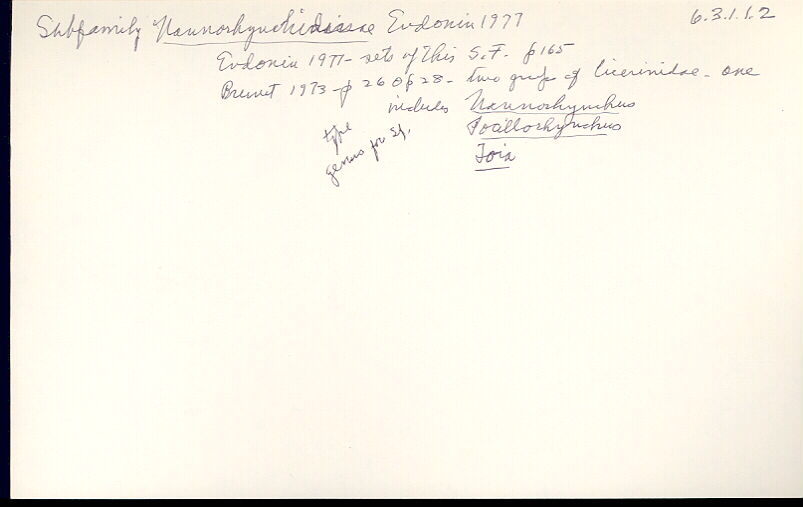 Subfamily Nannorhynchidinae Evdonin 1977 6.3.1.1.2
Evdonin 1977 - sets up this S.F. p165
Brunet 1973 - p 26 p 28 - two groups of Cicerinidae - one
includes Nannorhynchus
Pocillorhynchus
Toia
type
genus for Sf.